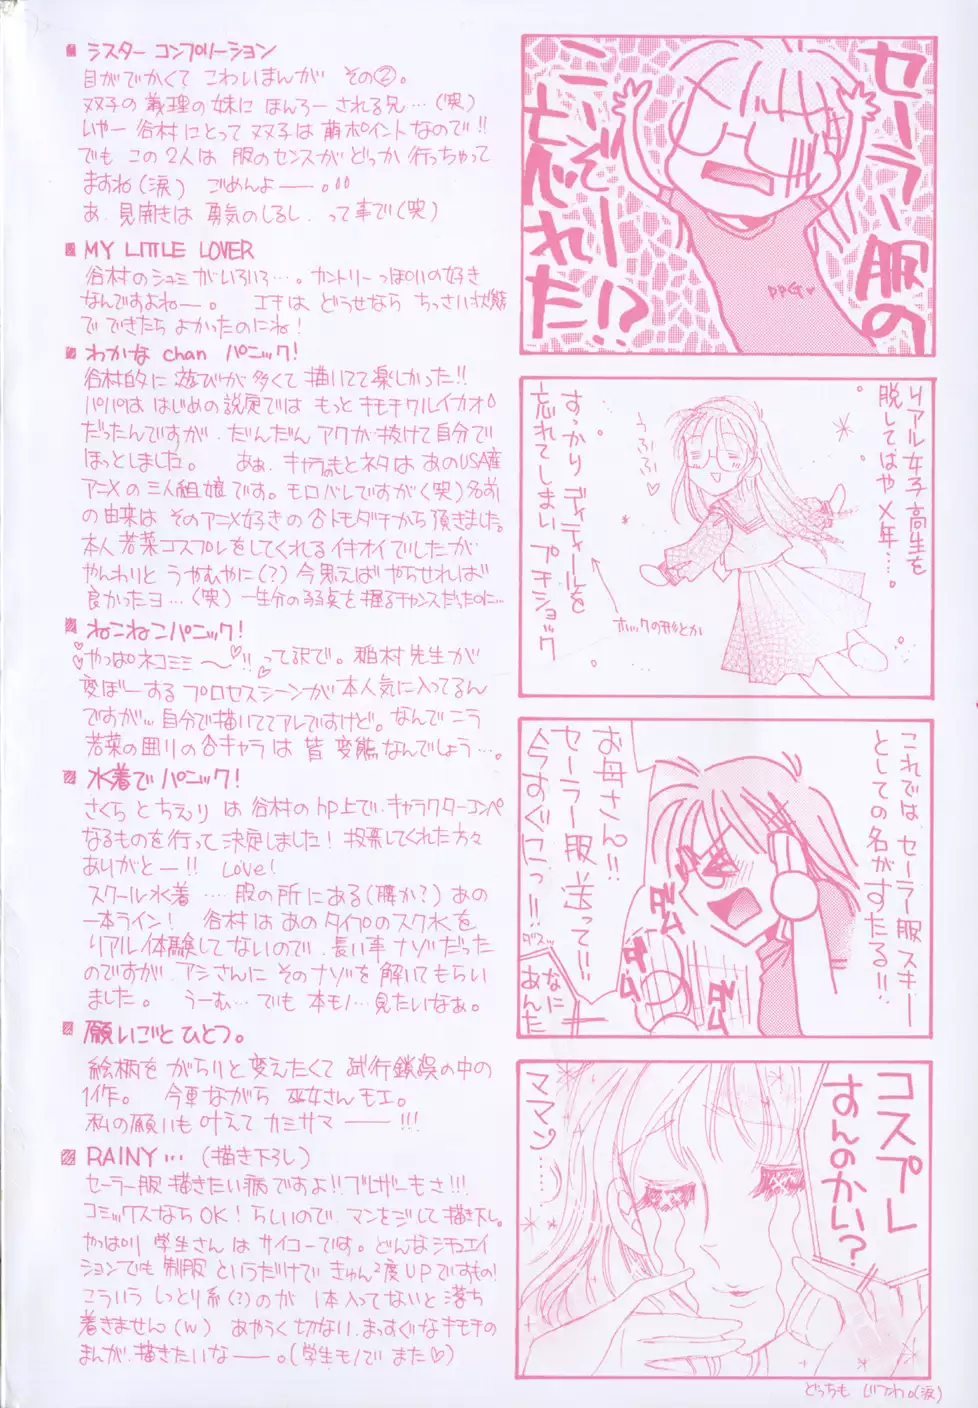 シスター コンプリーション
目がでかくて こわいまんが その②。
双子の義理の妹に ほんろー される兄…(笑)
いやー 谷村にとって 双子は 萌ポイントなので!!
でも この2人は 服のセンスが どっか 行っちゃって
ますね(涙) ごめんよ——。
あ、見開きは 勇気のしるし、って事で(笑)
MY LITTLE LOVER
谷村のシュミが いろいろ…。カントリーっぽいの好き
なんですよねー。 エチは どうせなら ちっさい状態
で できたら よかったのにね!
わかな chan パニック!
谷村的に 遊びが 多くて 描いてて楽しかった!!
パパは はじめの設定では もっと キモチワルイカオ
だったんですが、だんだん アクが 抜けて 自分で
ほっとしました。 ああ、キャラのもとネタは あのUSA産
アニメの 三人組娘です。モロバレですが(笑)名前
の由来は そのアニメ好きの 合トモダチから 頂きました。
本人 若菜コスプレをしてくれる イキオイでしたが
やんわりと うやむやに(?) 今思えば やらせれば
良かったヨ…(笑) 一生分の弱点を 握るチャンスだったのに…
ねこねこパニック!
やっぱネコミミ〜!! って訳で。稲村先生が
変ぼーする プロセスシーンが 本人気に入ってるん
ですが 自分で描いててアレですけど。なんで こう
若菜の囲りの 合キャラ は 皆 変態なんでしょう…。
水着で パニック!
さくら と ちえり は 谷村の hp上で、キャラクターコンペ
なるものを 行って 決定しました! 投票してくれた方々
ありがとー!! Love!
スクール水着 …… 股の所にある(腰か?) あの
一本ライン! 谷村は あの タイプのスク水を
リアル体験してないので、長い事 ナゾだった
のですが、アシさんに そのナゾを 解いてもらい
ました。 うーむ… でも 本モノ…見たいなぁ。
願いごと ひとつ。
絵柄を がらりと変えたくて 試行錯誤の中の
1作。 今更ながら 巫女さんモエ。
私の願いも 叶えて カミサマ ——!!!
RAINY…(描き下ろし)
セーラー服 描きたい病ですよ!! ブレザーもさ!!!
コミックスなら OK! らしいので、マンをじして 描き下し。
やっぱり 学生さん は サイコーです。どんなシチュエイ
ションでも 制服 というだけで きゅん2度UPですもの!
こういう しっとり系(?)のが 1本入ってないと 落ち
着きません(w) あやうく切ない、まっすぐな キモチの
まんが、描きたいなー。(学生モノで また♡)
セーラー服の
どぞーれた!?
ppG♥
リアル女子高生を
脱してはや×年…。
うふふふ
すっかり ディティールを
忘れてしまい プチショック
ホックの形とか
これでは、セーラー服スキー
としての名がすたる!!
お母さん!!
セーラー服 送って!!
今すぐにっ!!
ダム
ダム
ダム
なに
あんた
コスプレ
すんのかい?
ママン……
どっちも じつわ。(涙)